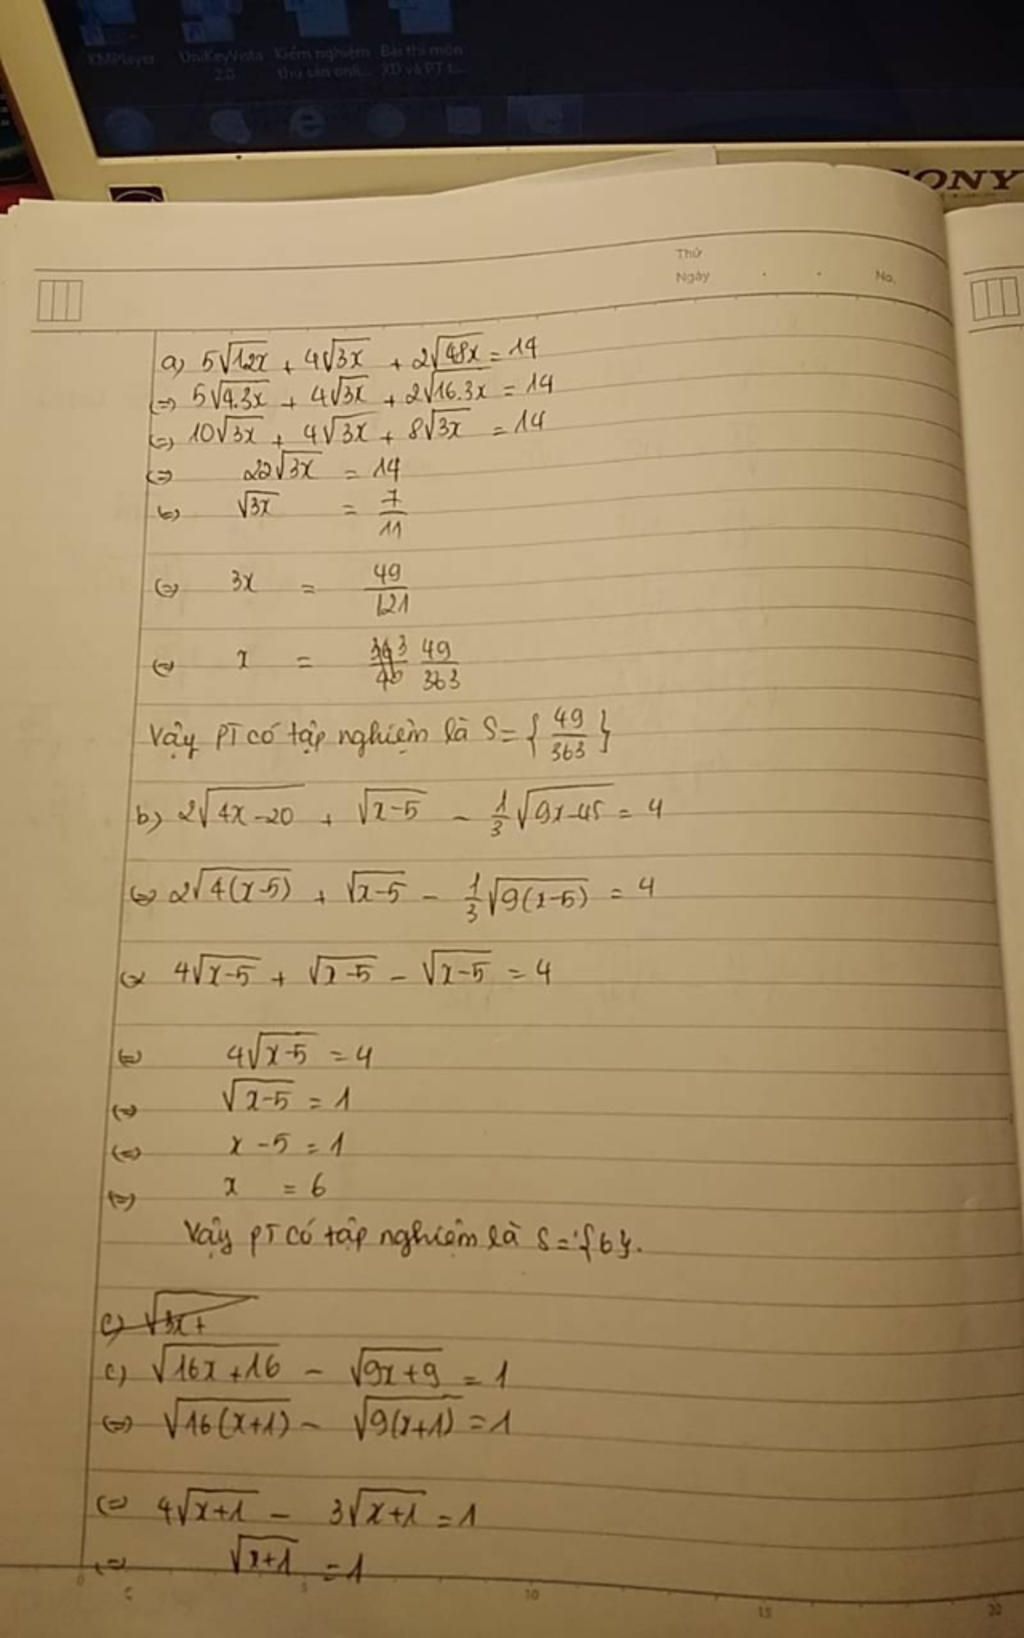 KMPlayer UniKeyVista Kiểm nghiệm Bài thi môn
2.0 thú sản onli... XD và PT t...
SONY
Thứ
Ngày . . No.
a) 5√12x + 4√3x + 2√48x = 14
(=) 5√4.3x + 4√3x + 2√16.3x = 14
(=) 10√3x + 4√3x + 8√3x = 14
(=) 22√3x = 14
(=) √3x = 7/11
(=) 3x = 49/121
(=) x = 49/363
Vậy PT có tập nghiệm là S = {49/363}
b) 2√4x-20 + √x-5 - 1/3√9x-45 = 4
(=) 2√4(x-5) + √x-5 - 1/3√9(x-5) = 4
(=) 4√x-5 + √x-5 - √x-5 = 4
(=) 4√x-5 = 4
(=) √x-5 = 1
(=) x - 5 = 1
(=) x = 6
Vậy PT có tập nghiệm là S = {6}.
c) √3x+
c) √16x+16 - √9x+9 = 1
(=) √16(x+1) - √9(x+1) = 1
(=) 4√x+1 - 3√x+1 = 1
(=) √x+1 = 1
0 5 10 15 20